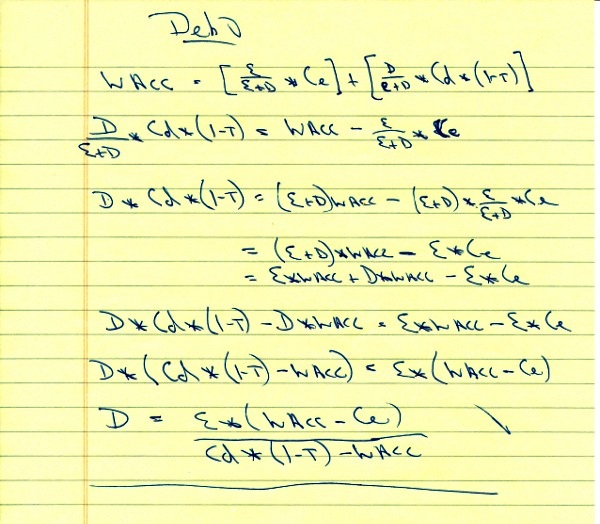 Debt
WACC = [E/E+D * Ce] + [D/E+D * Cd * (1-T)]
D/E+D * Cd * (1-T) = WACC - E/E+D * Ce
D * Cd * (1-T) = (E+D)WACC - (E+D) * E/E+D * Ce
= (E+D)*WACC - E*Ce
= E*WACC + D*WACC - E*Ce
D*Cd*(1-T) - D*WACC = E*WACC - E*Ce
D*(Cd*(1-T) - WACC) = E*(WACC - Ce)
D = E*(WACC - Ce)
Cd*(1-T) - WACC